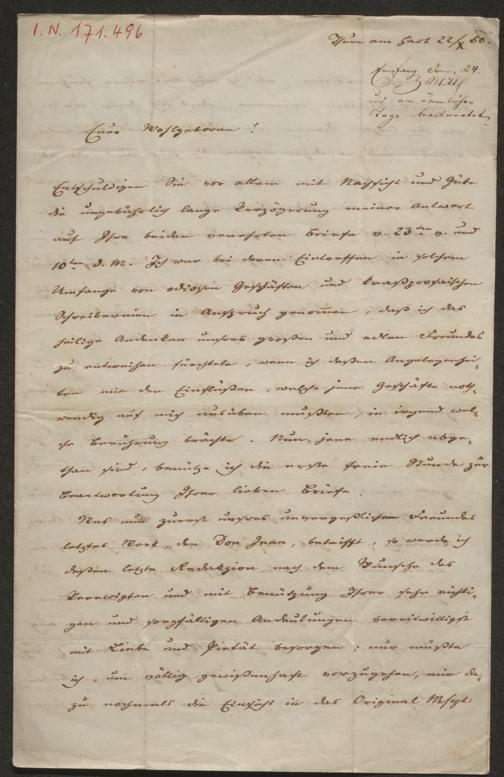 I. N. 171.496
Thurn am Hart 22/X 50.
Empfang Sonn. 24.
und am nämlichen
Tage beantwortet
Euer Wohlgeboren!
Entschuldigen Sie vor allem mit Nachsicht und Güte
die ungebührlich lange Verzögerung meiner Antwort
auf Ihre beiden verehrten Briefe v. 23ten v. und
10ten d. M. Ich war bei deren Eintreffen in solchem
Umfange von odiosen Geschäften und kraßprosaischen
Schreibereien in Anspruch genommen, daß ich das
heilige Andenken unsres großen und edlen Freundes
zu entweihen fürchtete, wenn ich dessen Angelegenhei-
ten mit den Einflüßen, welche jene Geschäfte noth-
wendig auf mich ausüben mußten, in irgend wel-
che Berührung brächte. Nun jene endlich abge-
than sind, benütze ich die erste freie Stunde zur
Beantwortung Ihrer lieben Briefe.
Was nun zuerst unsres unvergeßlichen Freundes
letztes Werk, den Don Juan, betrifft, so werde ich
dessen letzte Redakzion nach dem Wunsche des
Verewigten und mit Benützung Ihrer sehr richti-
gen und sorgfältigen Andeutungen bereitwilligst
mit Liebe und Pietät besorgen; nur müßte
ich, um völlig gewissenhaft vorzugehen, mir da-
zu nochmals die Einsicht in das Original Mspt.